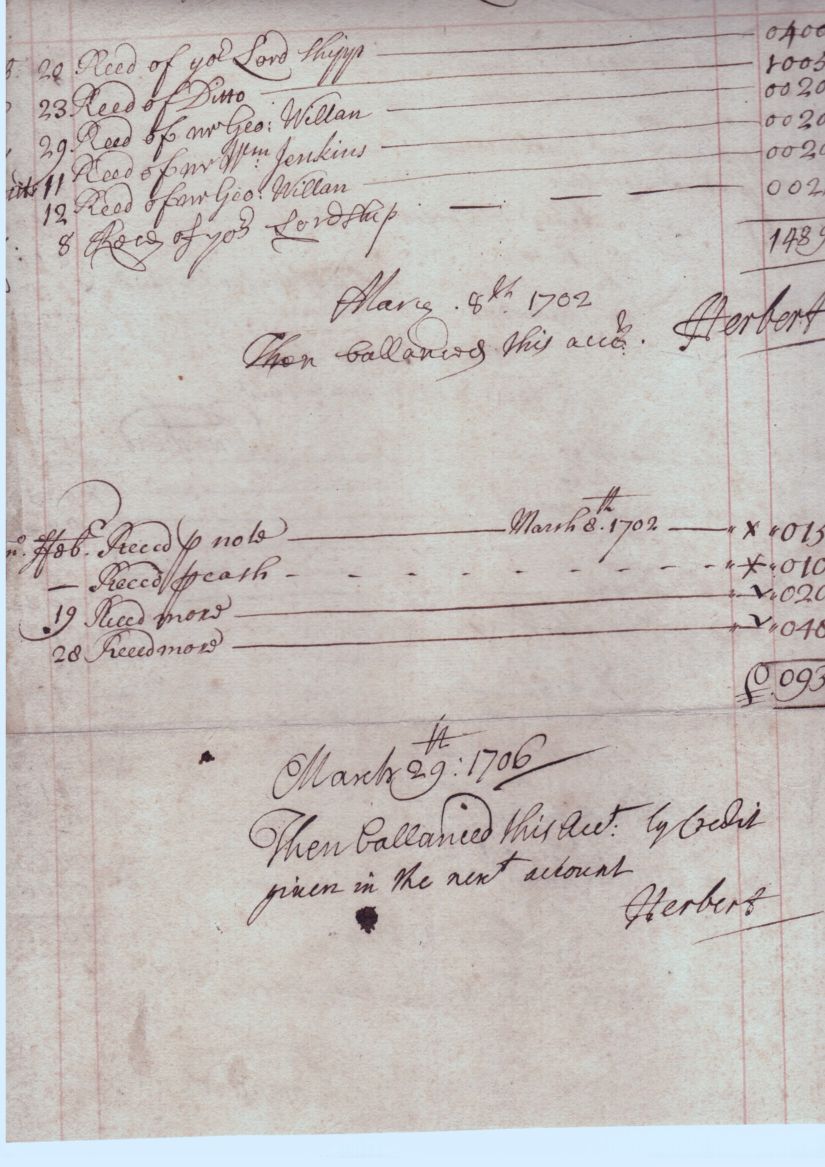 20 Recd of yor Lord shipp 0400
23 Recd of Ditto 1005
29 Recd of mr Geo: Willan 0020
11 Recd of mr Wm Jenkins 0020
12 Recd of mr Geo: Willan 0020
8 Recd of yor Lordship 002
1489
Marg . 8th 1702
Then ballanced this acct. Herbert
Feb. Recd p note March 8th. 1702 " x " 015
— Recd p cash - - - - - " x " 010
19 Recd more " v " 020
28 Recd more " v " 040
£ 093
March 29th: 1706
Then ballanced this Acct: by Credit
given in the next account
Herbert